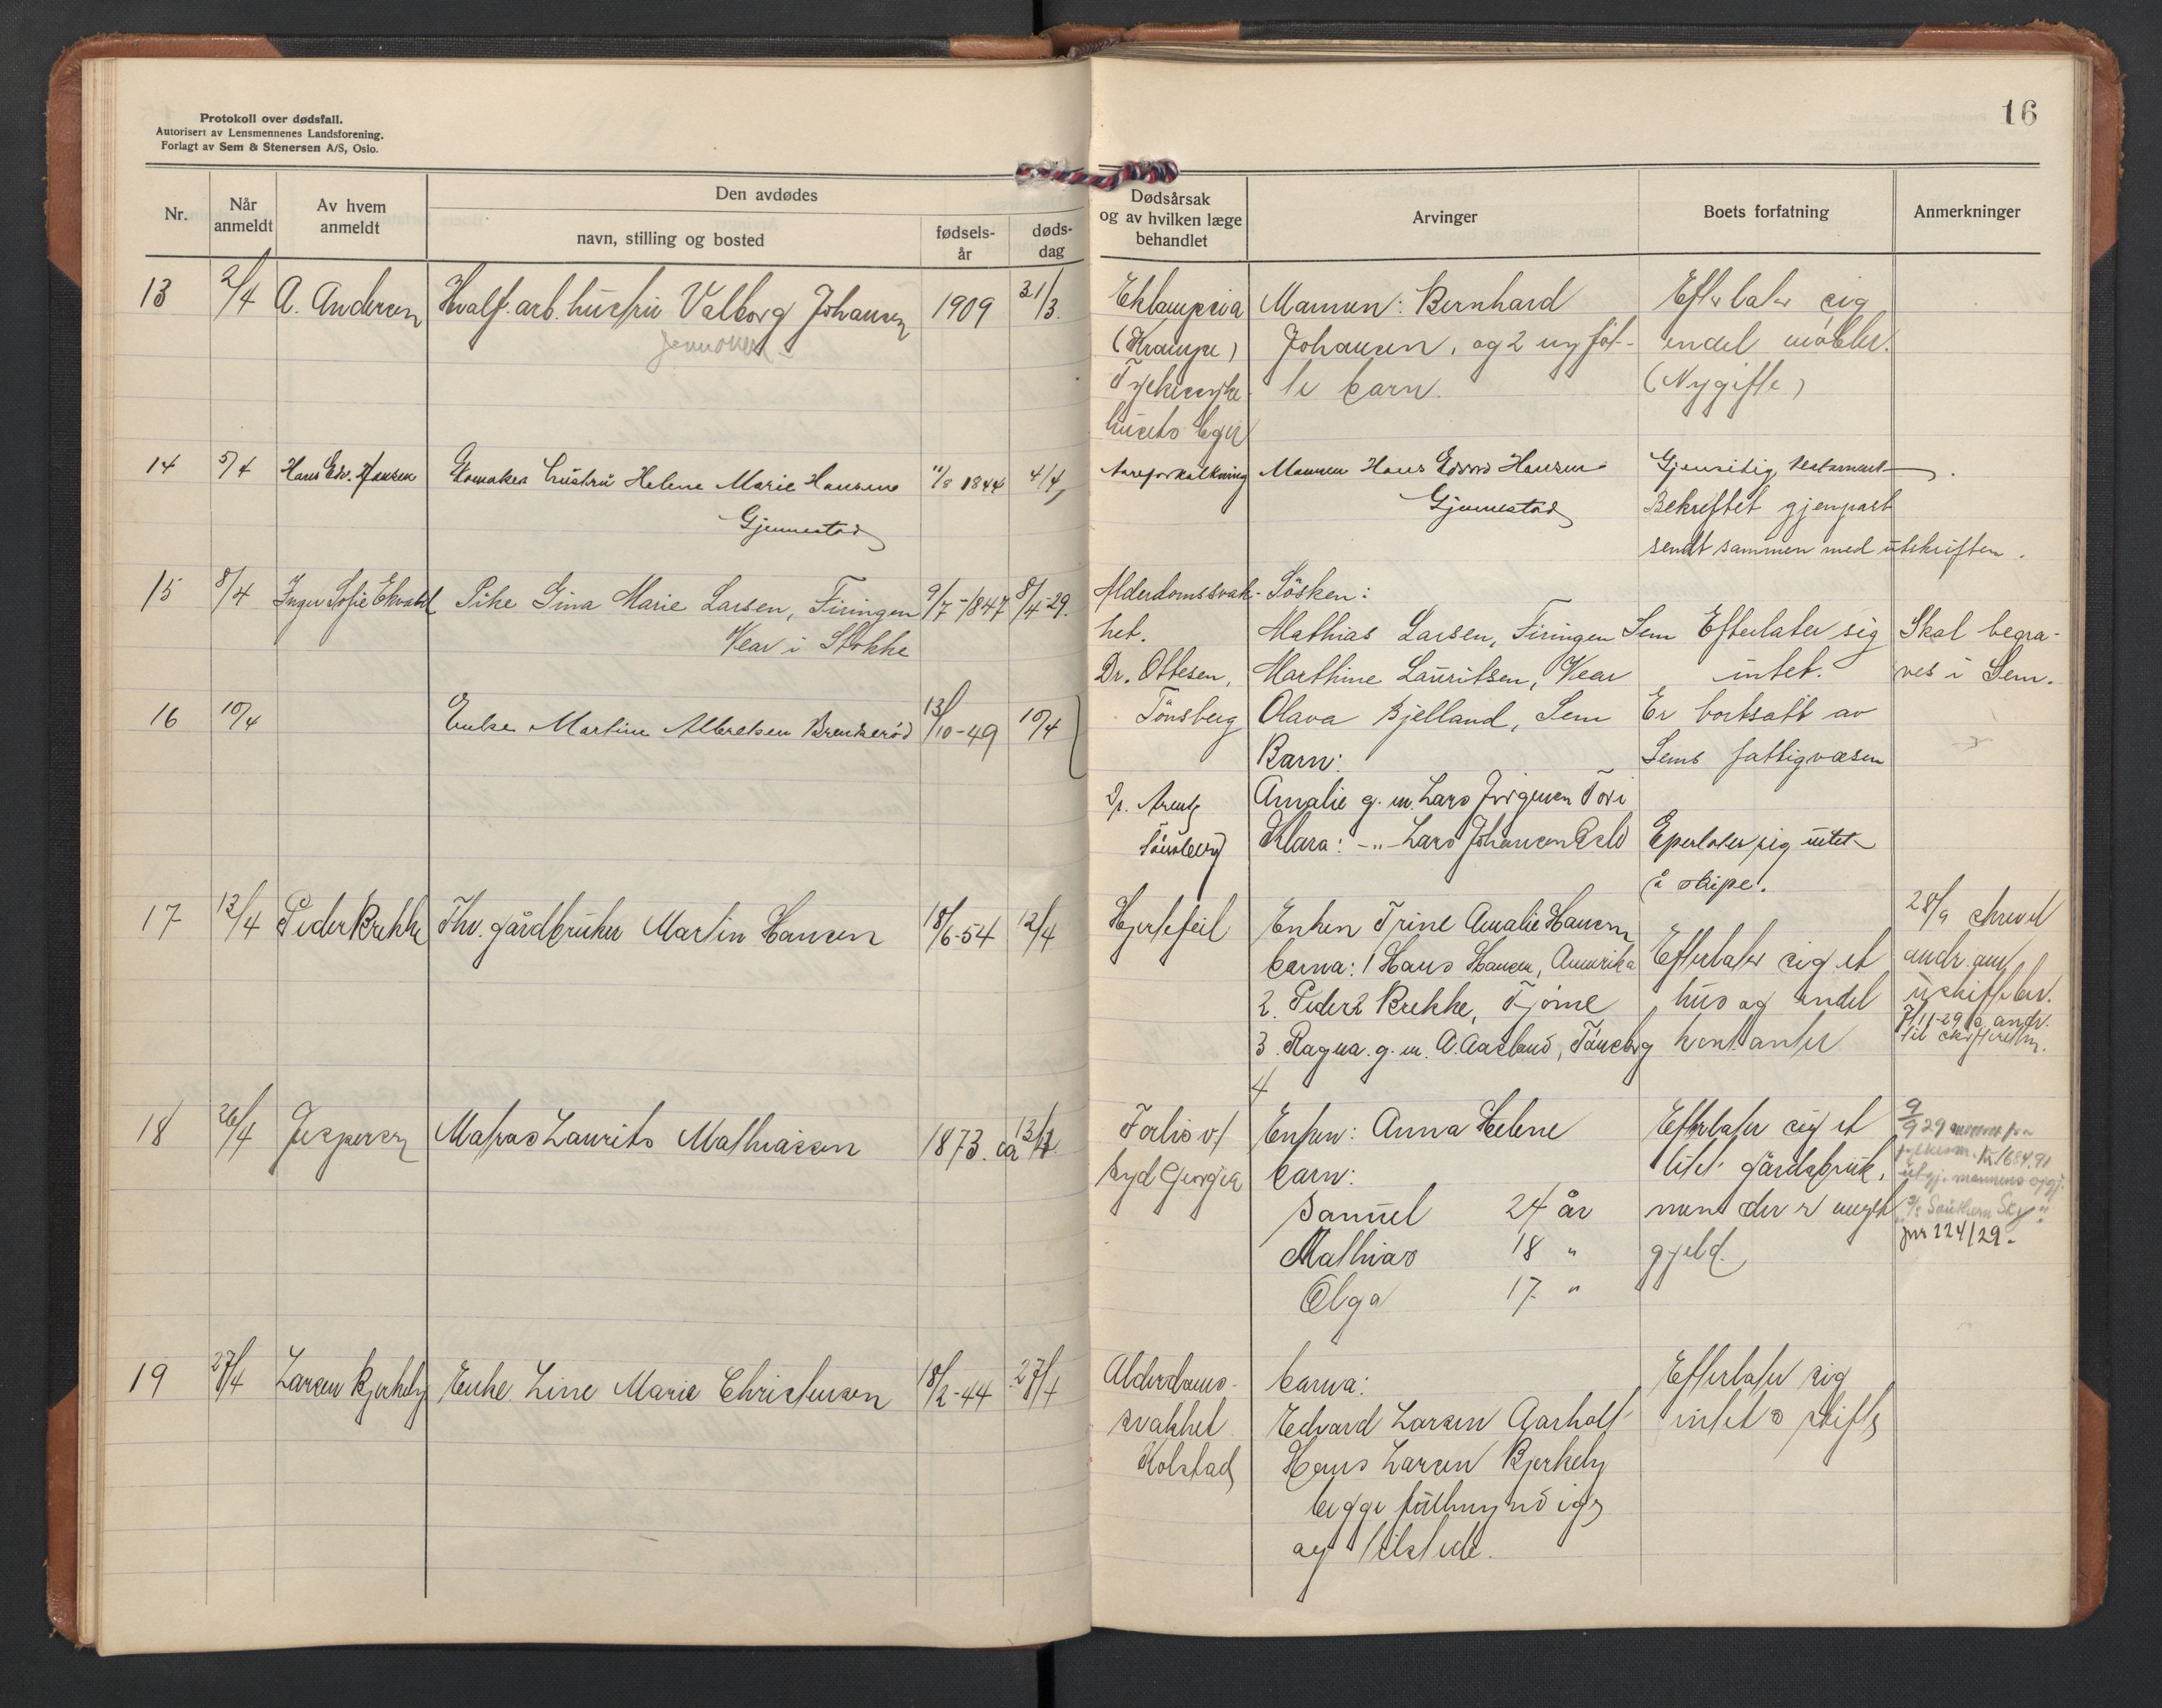 Protokoll over dødsfall.
Autorisert av Lensmennenes Landsforening.
Forlagt av Sem & Stenersen A/S, Oslo.
16
Nr.
Når anmeldt
Av hvem anmeldt
Den avdødes
navn, stilling og bosted
fødsels-år
døds-dag
Dødsårsak og av hvilken læge behandlet
Arvinger
Boets forfatning
Anmerkninger
13 2/4 A. Andersen Hvalf. arb. hustru Valborg Johansen 1909 31/3.
Eklampsia Mannen: Bernhard Efterlater sig
(Krampe) Johansen, og 2 ny föd- endel möbler.
te barn. (Nygifte)
husets
14 5/4 Hans Edv. Hansen hustru Helene Marie Hansen 11/8 1844 4/4
Gjennestad
Aareforkalkning Mannen Hans Edvard Hansen Gjensidig testament.
Gjennestad Bekreftet gjenpart
sendt sammen med utskriften.
15 8/4 Inger Sofie Ekvald Pike Gina Marie Larsen, Firingen 9/7-1847 8/4-29.
Vear i Stokke
Alderdomssvak- Søsken:
het. Mathias Larsen, Firingen Sem Efterlater sig Skal begra-
Dr. Ottesen, Marthine Lauritsen, Vear intet. ves i Sem.
Tönsberg Olava Bjelland, Sem Er bortsatt av
Sems fattigvæsen
16 10/4 Enke Martine Albretsen Brenserød 13/10-49 10/4
Barn:
Dr. Arentz Amalie g. m. Lars Jörgensen
Tönsberg Klara: -"- Lars Johansen Oslo Efterlater sig intet
å skifte.
17 13/4 Peder Brekke Fhv. gårdbruker Martin Hansen 18/6-54 12/4
Hjertefeil Enken Trine Amalie Hansen 28/9 skrevet
barna: 1 Hans Hansen, Amerika Efterlater sig et andr. om
2. Peder Brekke, Tjöme hus og endel uskiftebev.
3. Ragna g. m. A. Aasland, Tönsberg kontanter
4
18 26/4 Jespersen Matros Laurits Mathiassen 1873. ca 12/4.
Forlis v/ Enken: Anna Helene Efterlater sig et
Syd Georgia barn: litet gårdsbruk,
Samuel 24 år men der er meget
Mathias 18 " gjeld.
Olga 17 "
9/9 29
Kr. 1684.91
utgj. mannens opgj.
"Southern Sky"
jnr 224/29.
19 27/4 Larsen Bjerkely Enke Line Marie Christensen 18/2-44 27/4
Alderdoms- barna: Efterlater sig
svakhet Edvard Larsen Aarholt intet å skifte
Kolstad Hans Larsen Bjerkely
begge fullmyndige
og tilstede.